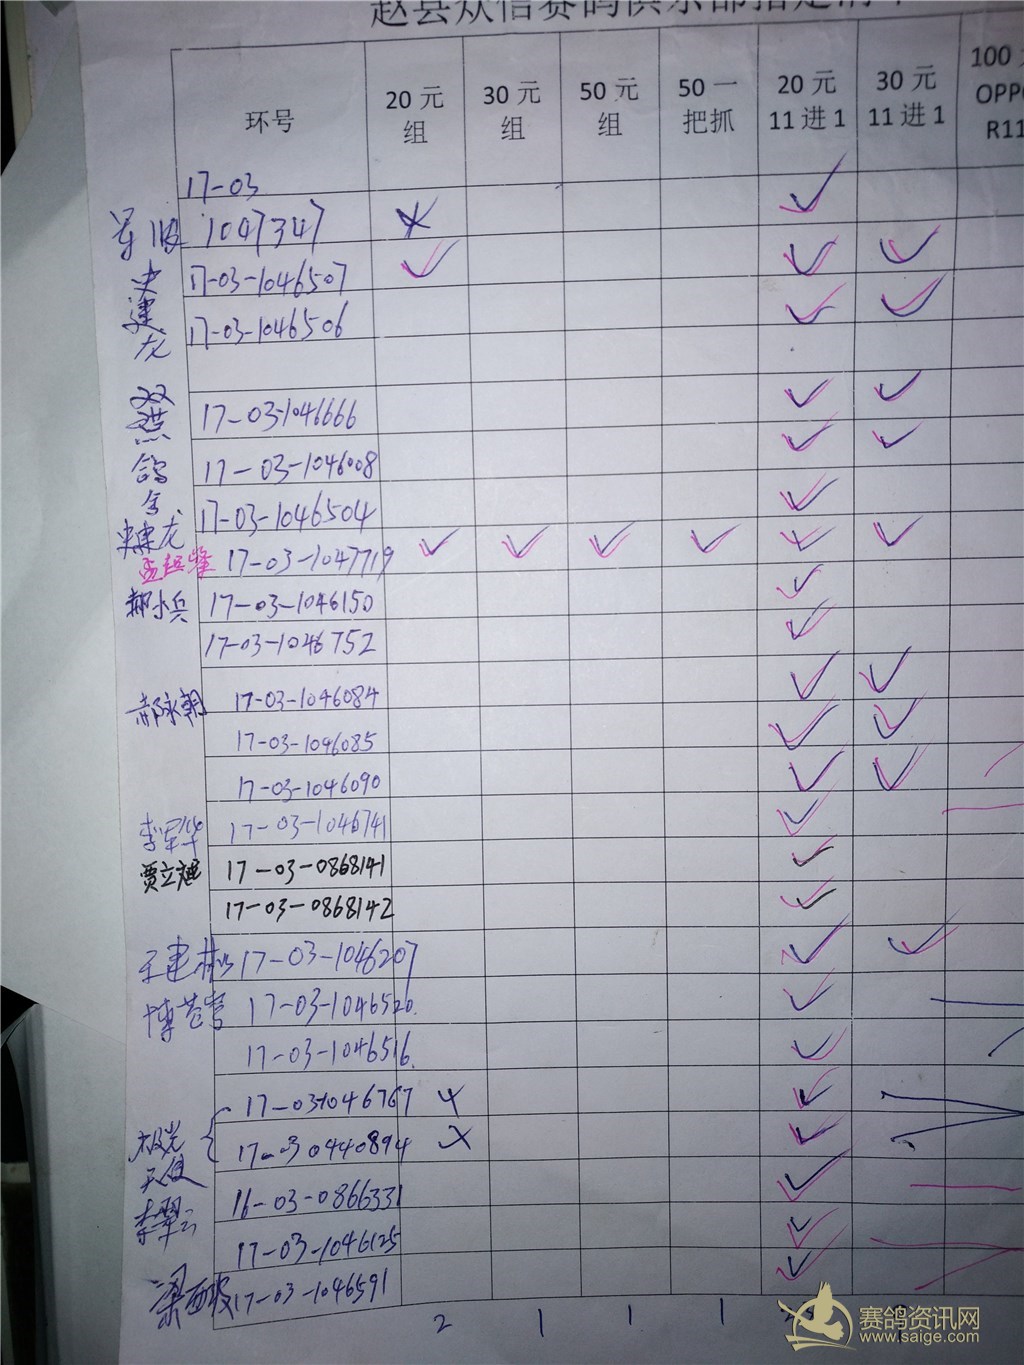 赵县众信赛鸽俱乐部指定
环号 20元组 30元组 50元组 50一把抓 20元11进1 30元11进1 100 OPP R11
17-03 ✓
1047347 ✗
史建龙 17-03-1046507 ✓ ✓ ✓
17-03-1046506 ✓ ✓
双 鸽舍 17-03-1046666 ✓ ✓
17-03-1046008 ✓ ✓
17-03-1046504 ✓
史建龙
17-03-1047719 ✓ ✓ ✓ ✓ ✓ ✓
郝小兵 17-03-1046150 ✓
17-03-1046752 ✓
郝永朝 17-03-1046084 ✓ ✓
17-03-1046085 ✓ ✓
17-03-1046090 ✓ ✓
李军华 17-03-1046741 ✓
贾立 17-03-0868141 ✓
17-03-0868142 ✓
王建彬 17-03-1046207 ✓ ✓
17-03-1046520 ✓
17-03-1046516 ✓
极光天使 17-03-1046767 ✗ ✓
17-03 0440894 ✗ ✓
李翠云 16-03-0866331 ✓
17-03-1046125 ✓
梁西波 17-03-1046591 ✓
2 1 1 1
赛鸽资讯网
www.saige.com